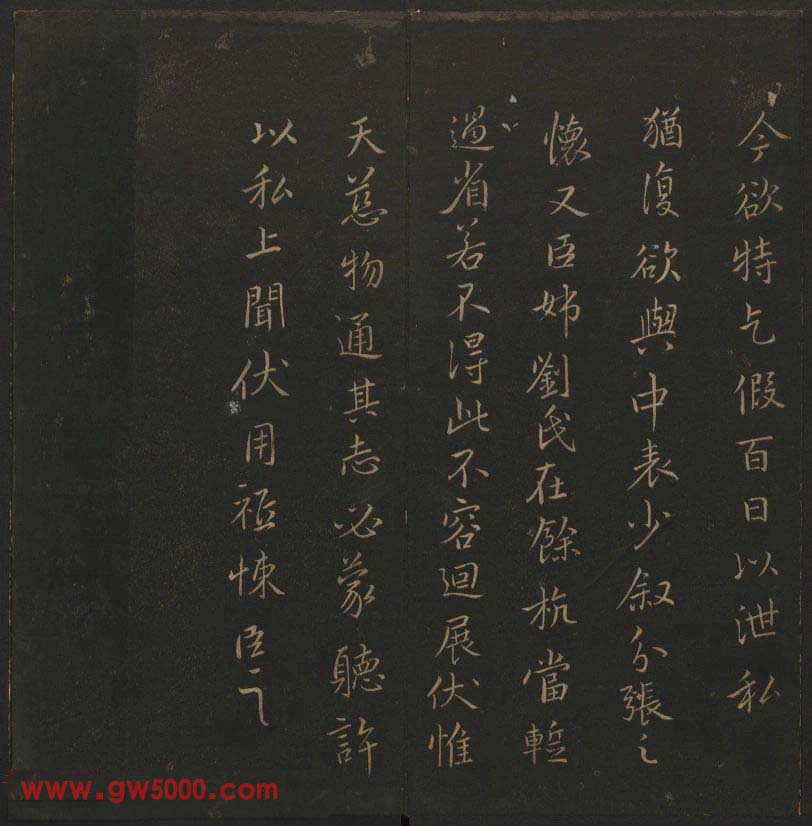 今欲特乞假百日以泄私
猶復欲與中表少叙分張之
懷又臣姊劉氏在餘杭當暫
過省若不得此不容迴展伏惟
天慈物通其志必蒙聽許
以私上聞伏用祗悚臣
www.gw5000.com